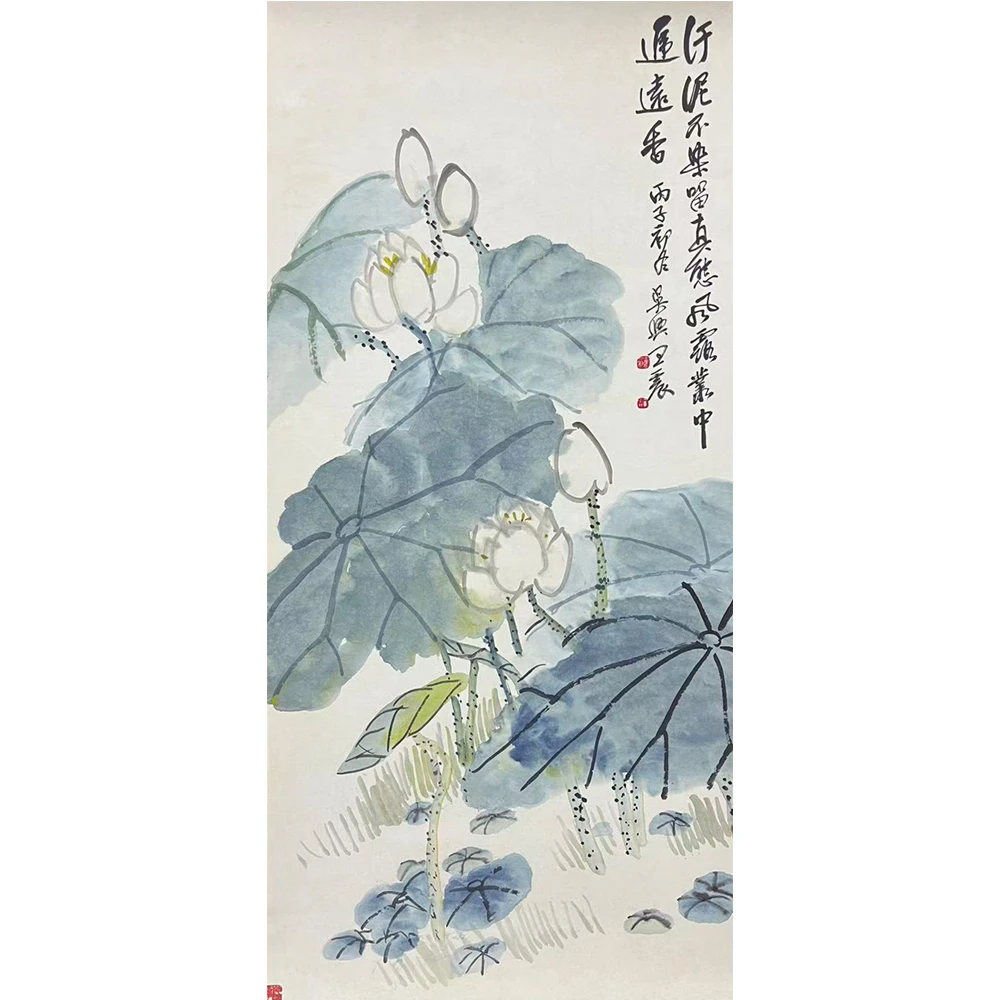 汙泥不染留真態風露叢中
遞遠香
丙子初冬吳興王震